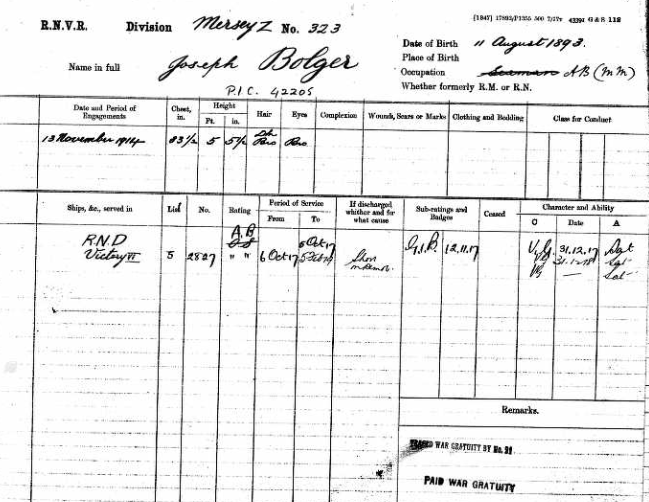 R.N.V.R. Division Mersey Z No. 323
Name in full Joseph Bolger
P.I.C. 42205
Date of Birth 11 August 1893.
Place of Birth
Occupation Seaman AB (MM)
Whether formerly R.M. or R.N.
Date and Period of Engagements Chest, in. Height Ft. in. Hair Eyes Complexion Wounds, Scars or Marks Clothing and Bedding Class for Conduct
13 November 1914 33 1/2 5 5 1/2 Dk Bro Bro
Ships, &c., served in List No. Rating Period of Service From To If discharged whether and for what cause Sub-ratings and Badges Ceased Character and Ability C Date A
R.N.D A.B 5 Oct 17 G.C.B. 12.11.17 V.G. 31.12.17 Sat
Victory VI 5 2827 " " 6 Oct 17 Shore 31.12.18 Sat
VG — Sat
Remarks.
WAR GRATUITY BY No. 31
PAID WAR GRATUITY